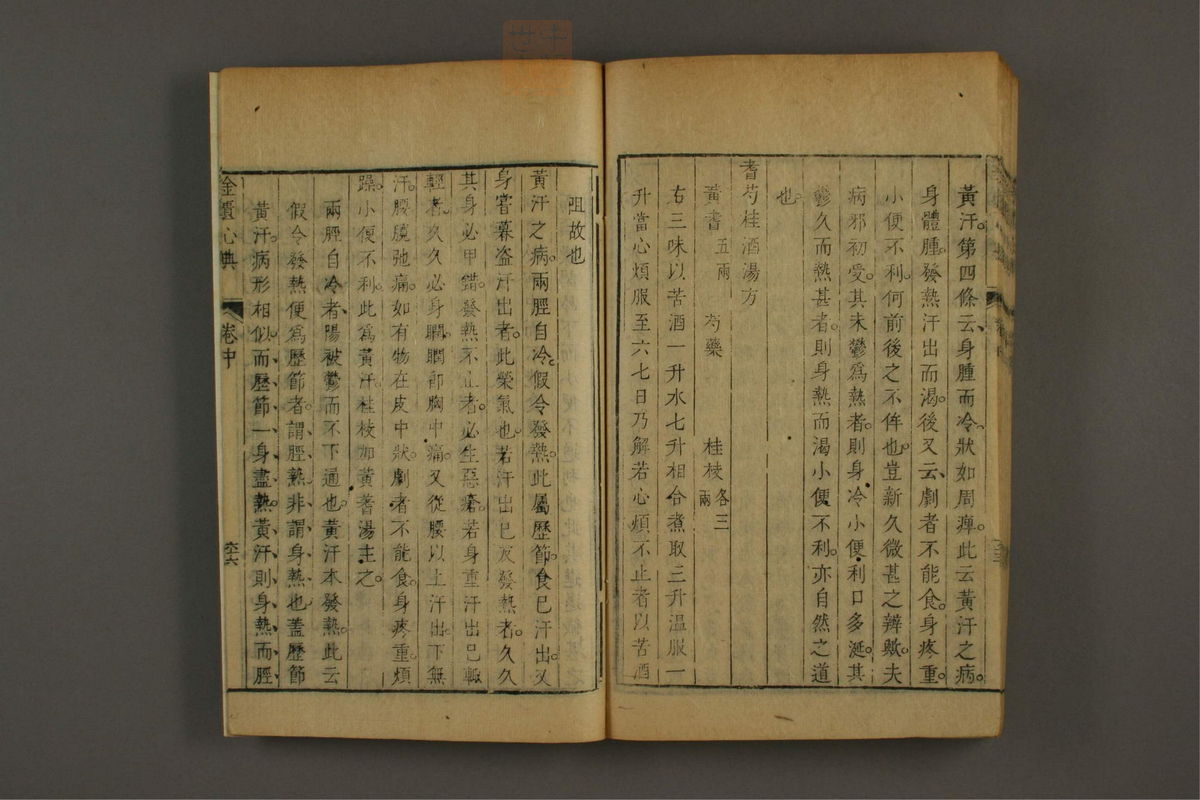 黃汗第四條云身腫而冷狀如周痺此云黃汗之病
身體腫發熱汗出而渴後又云劇者不能食身疼重
小便不利何前後之不侔也豈新久微甚之辨歟夫
病邪初受其未鬱爲熱者則身冷小便利口多涎其
鬱久而熱甚者則身熱而渴小便不利亦自然之道
也
耆芍桂酒湯方
黃耆五兩 芍藥 桂枝各三兩
右三味以苦酒一升水七升相合煮取三升温服一
升當心煩服至六七日乃解若心煩不止者以苦酒
阻故也
黃汗之病兩脛自冷假令發熱此屬歷節食已汗出又
身嘗暮盜汗出者此榮氣也若汗出已反發熱者久久
其身必甲錯發熱不止者必生惡瘡若身重汗出已輙
輕者久久必身瞤瞤即胸中痛又從腰以上汗出下無
汗腰髖弛痛如有物在皮中狀劇者不能食身疼重煩
躁小便不利此爲黃汗桂枝加黃耆湯主之
兩脛自冷者陽被鬱而不下通也黃汗本發熱此云
假令發熱便爲歷節者謂脛熱非謂身熱也蓋歷節
黃汗病形相似而歷節一身盡熱黃汗則身熱而脛
金匱心典 卷中 六六